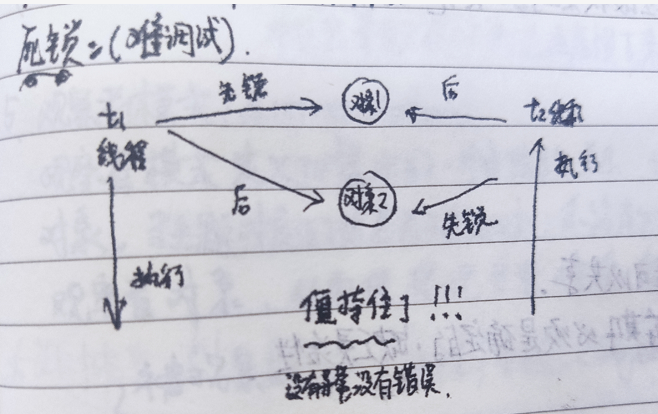 死锁：(难调试).
先锁
对象1
后
t1
线程
t2线程
执行
后
对象2
先锁
执行
僵持住了!!!
没有异常没有错误.